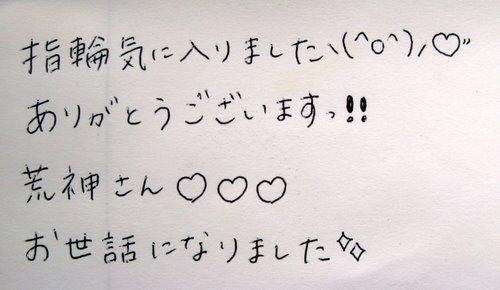 指輪気に入りましたヽ(^o^)ノ♡"
ありがとうございますっ!!
荒神さん♡♡♡
お世話になりました✧✧